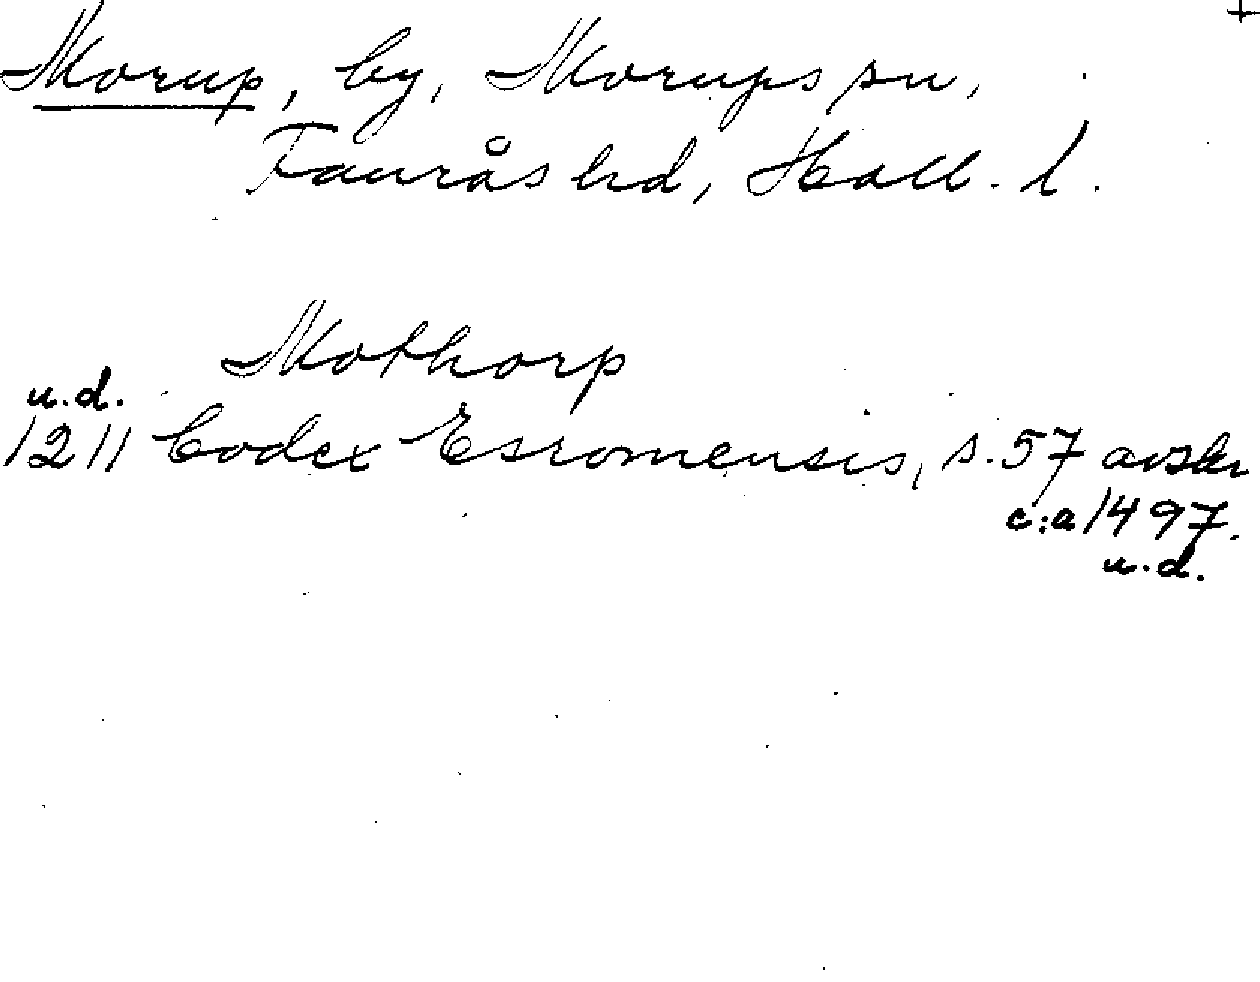 +
Morup, by, Morups sn,
Faurås hd, Hall. l.
Mothorp
u.d.
1211 Codex Esromensis, s. 57 avskr
c:a 1497.
u.d.